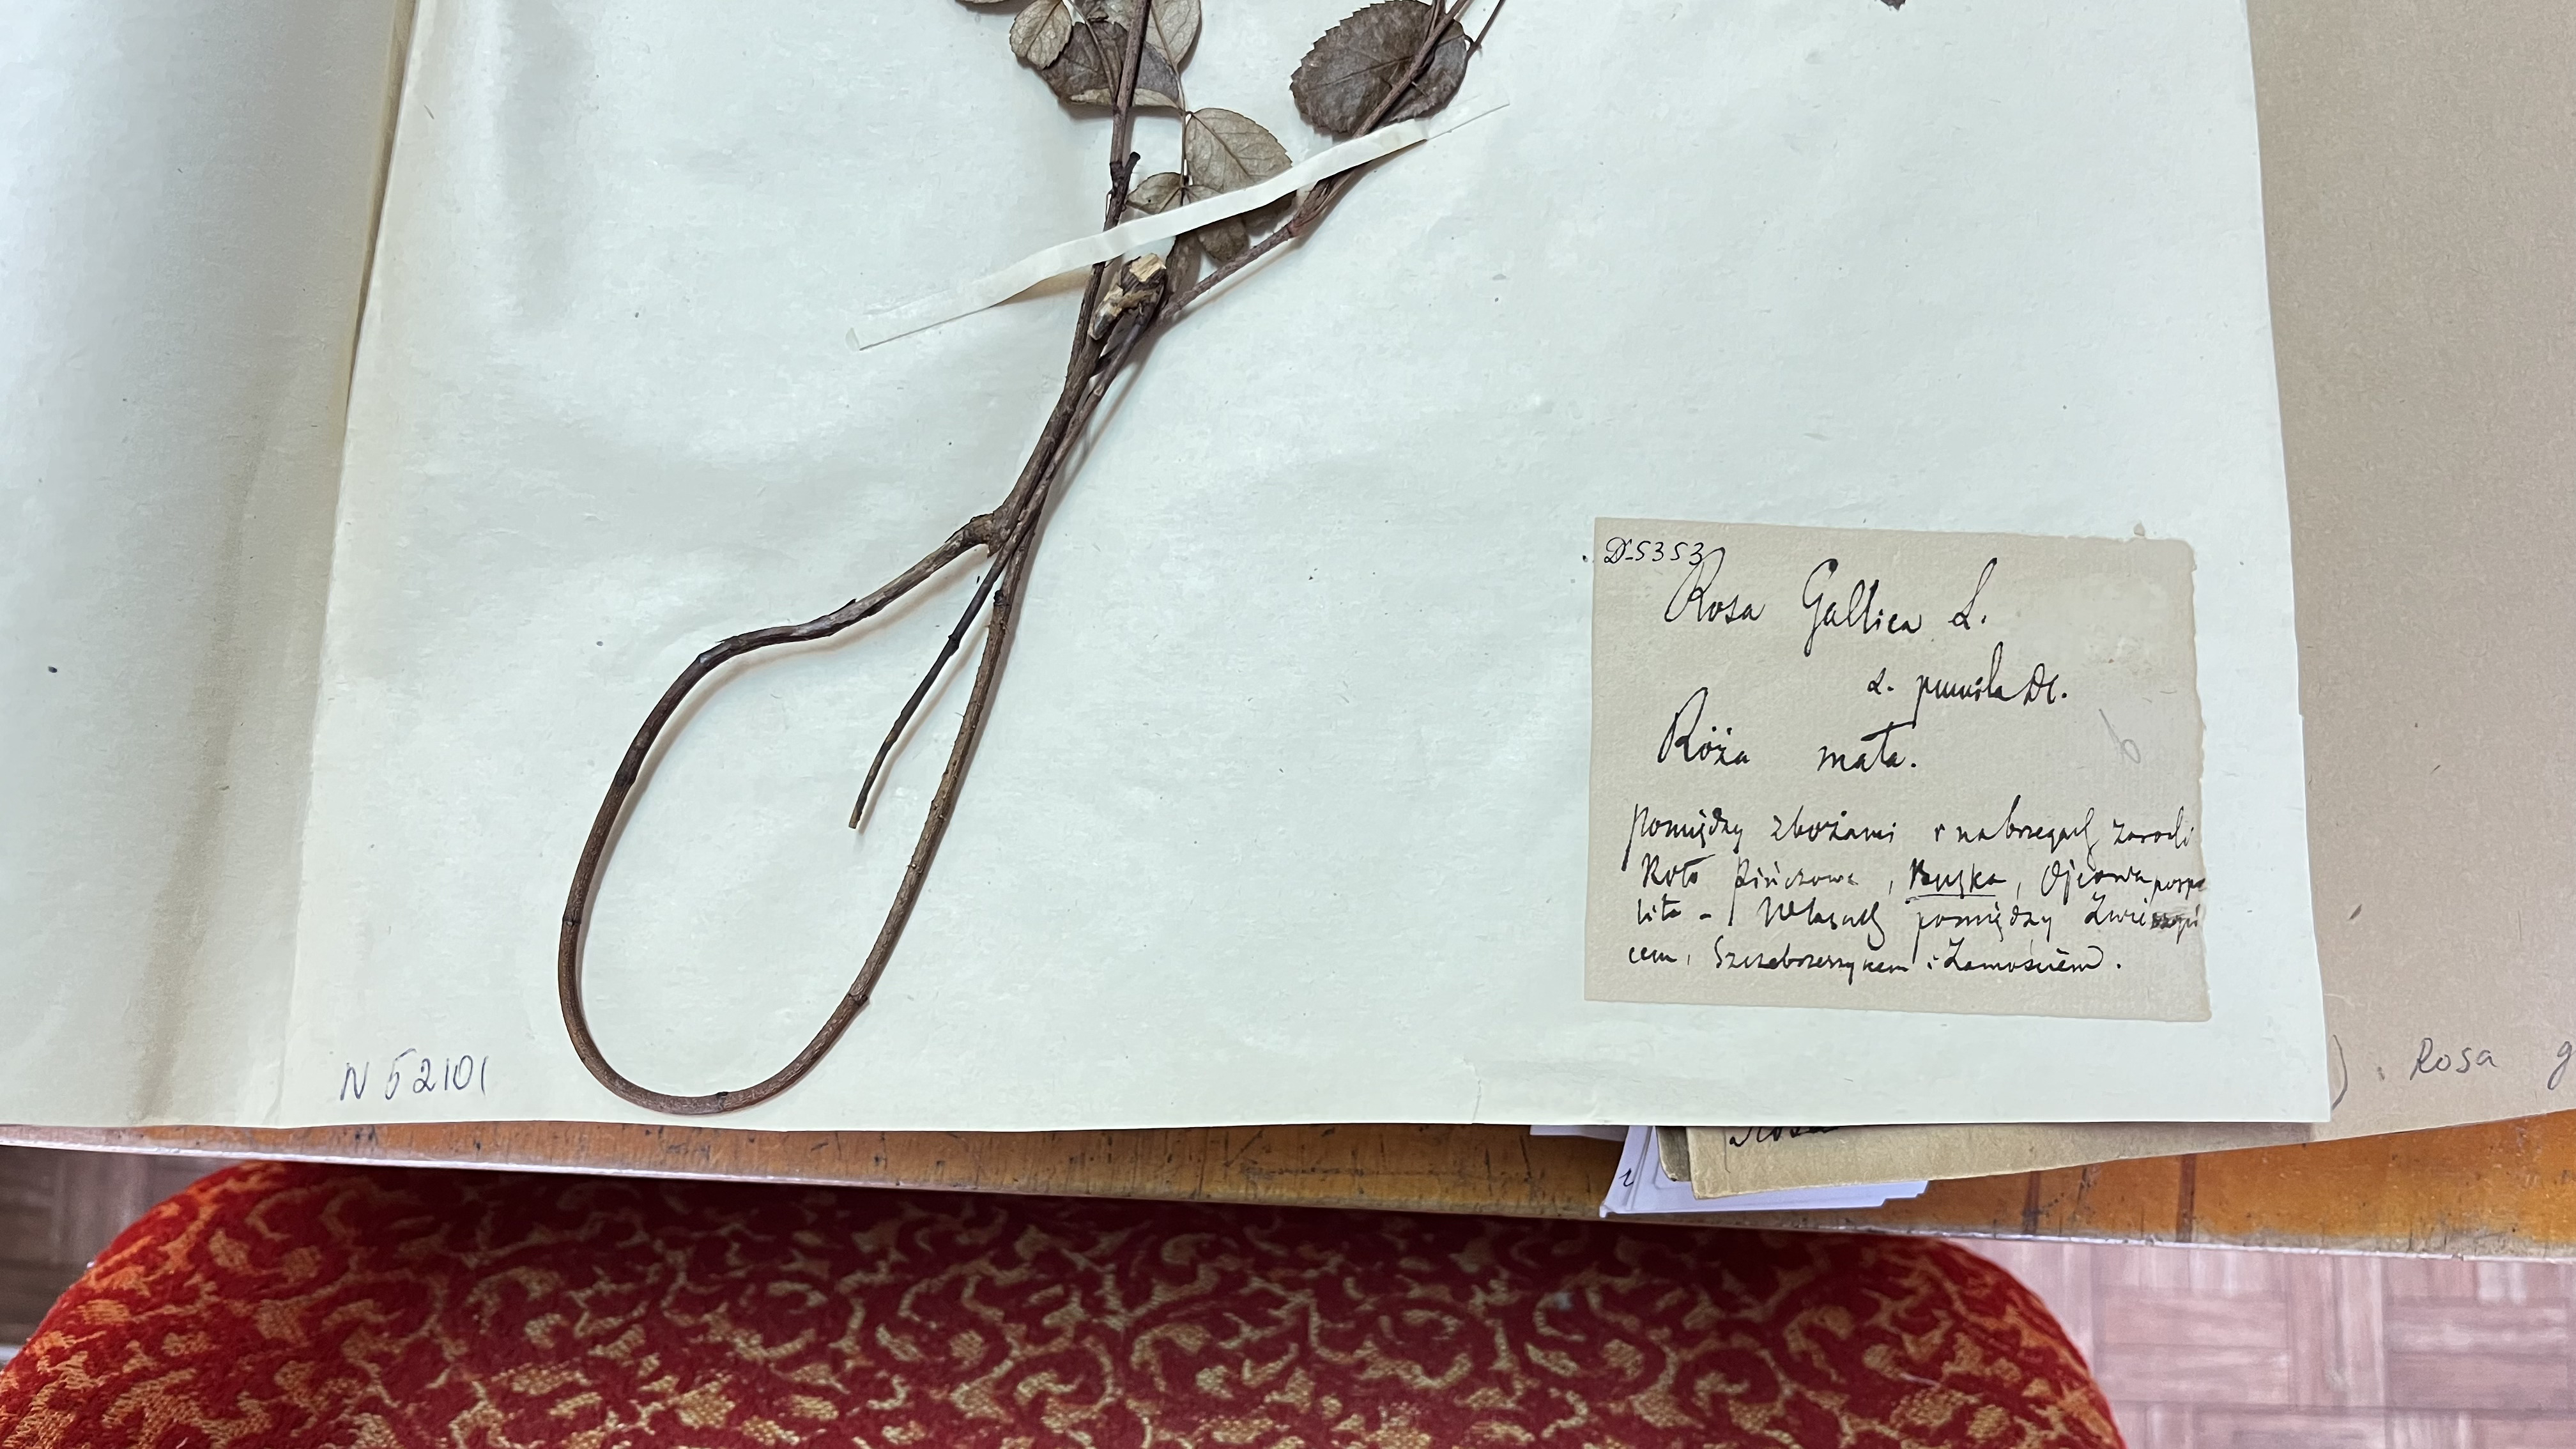 D-5353
Rosa Gallica L.
α. pumila DC.
Róża mała.
pomiędzy zbożami i na brzegach zarośli
Koło Pińczowa, Buska, Ojcowa pospo
lita - W lasach pomiędzy Zwierzyń
cem, Szczebrzeszynem i Zamościem.
N 52101
Rosa g